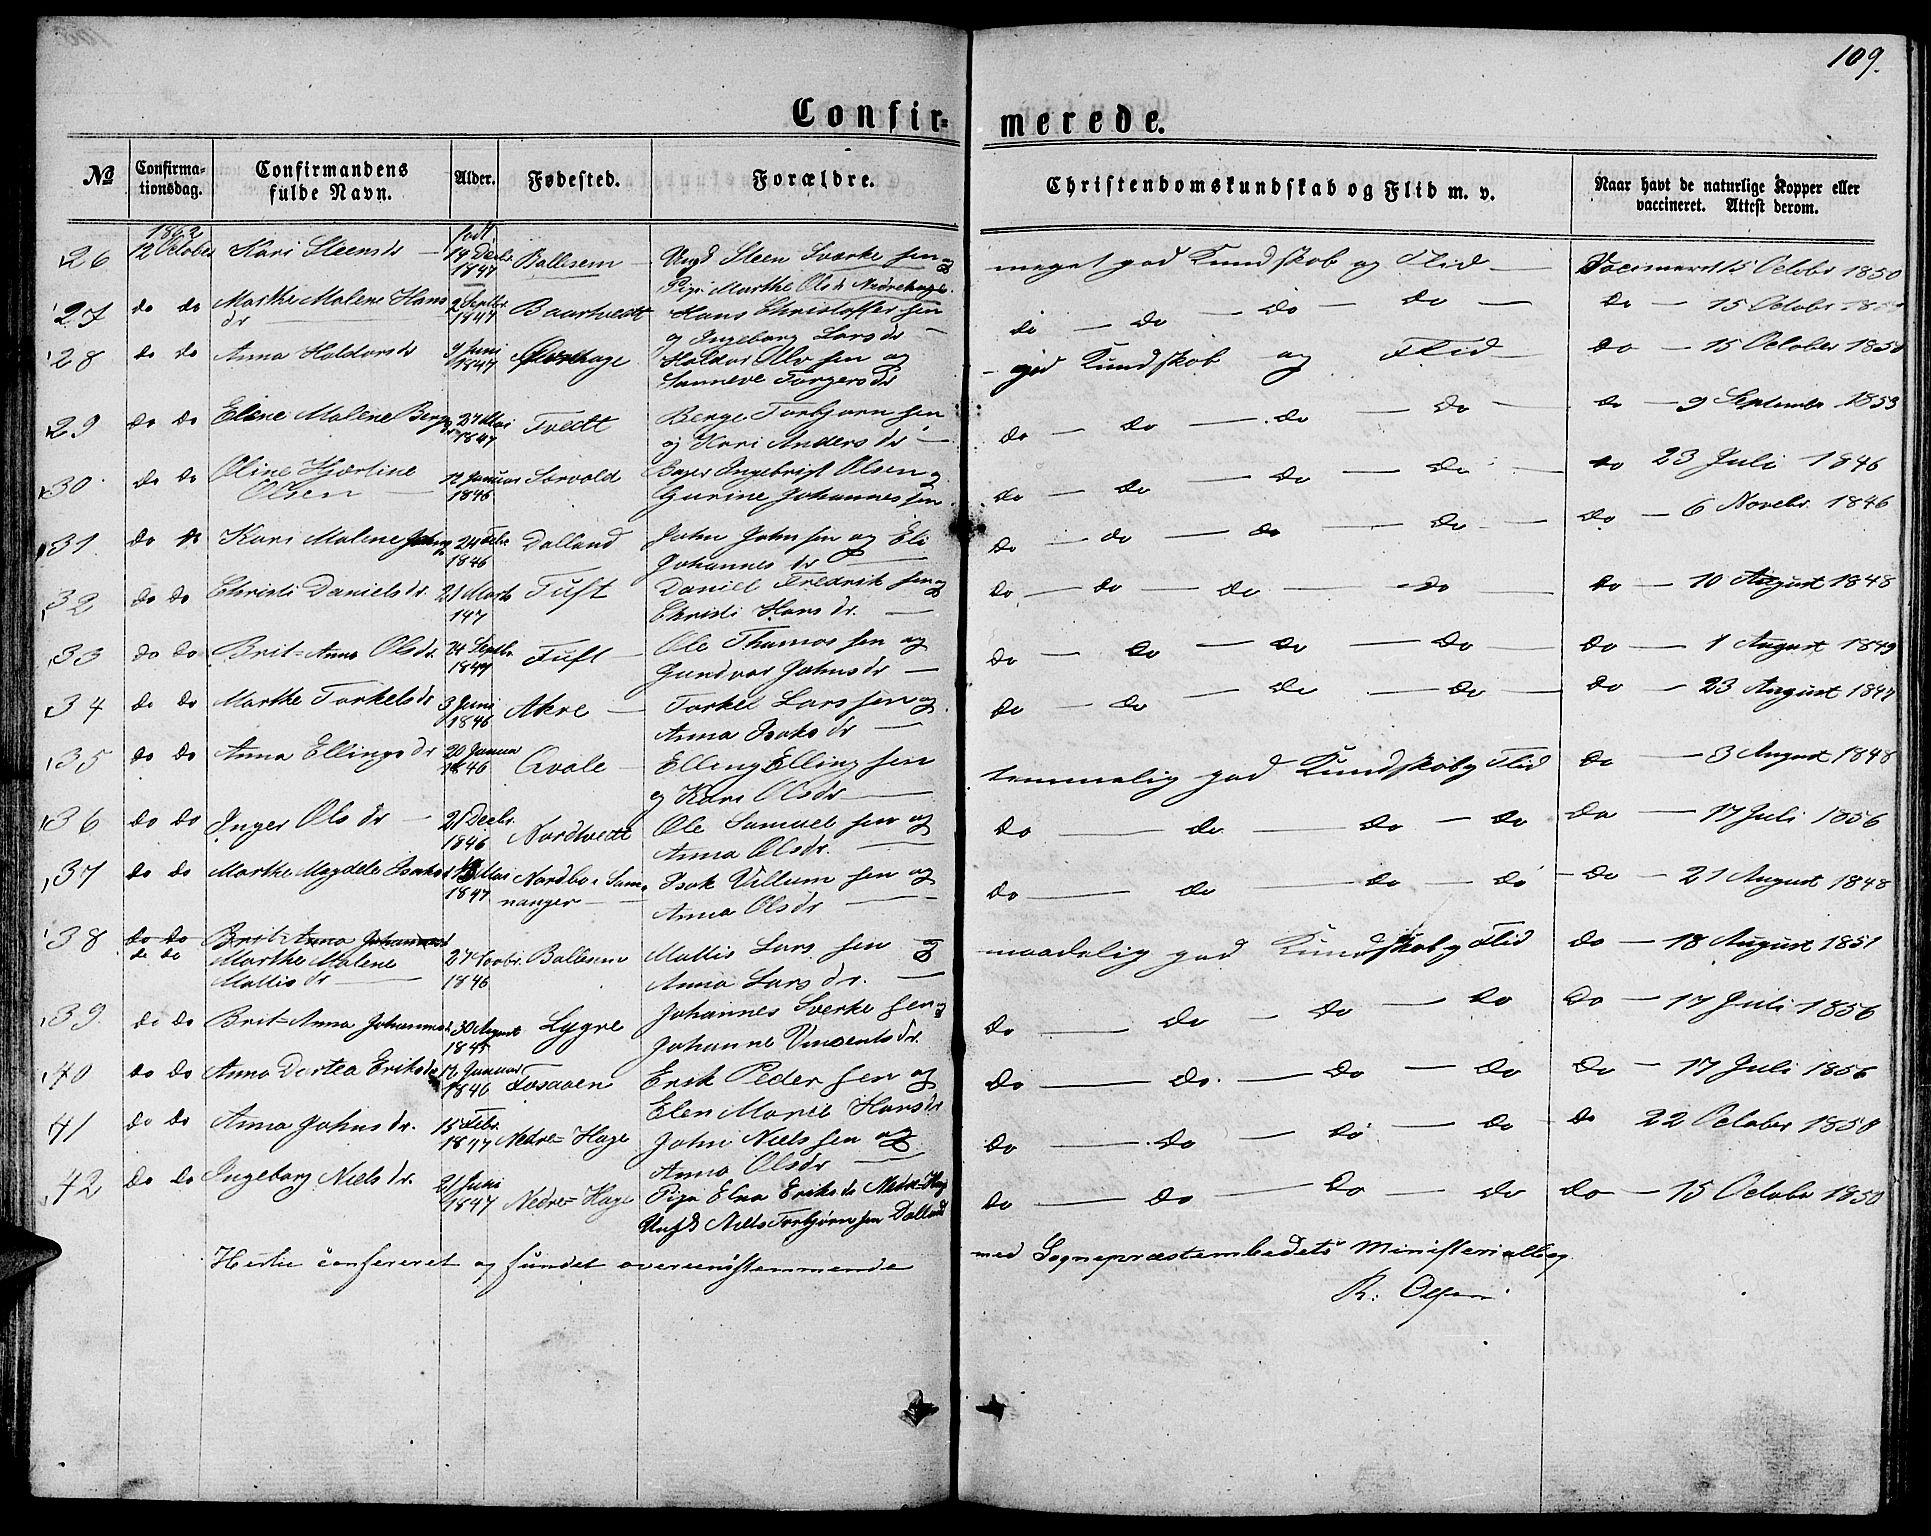 109.
Confir= merede.
No Confirma-tionsdag. Confirmandens fulde Navn. Alder. Fødested. Forældre. Christendomskundskab og Flid m. v. Naar havt de naturlige Kopper eller vaccineret. Attest derom.
1862 født
26 12 October Kari Steensdr 19 Decbr 1847 Ballesem Ungk Steen Sværke sen og meget god Kundskab og Flid Vaccineret 15 Octobr 1850
Pige Marthe Olsdr Nedrehage
27 do do Marthe Malene Hans dr 2 Septbr 1847 Baartvedt Hans Christoffer sen do do do do do 15 October
og Ingeborg Larsdr
28 do do Anna Haldorsdr 9 Juni 1847 Haldor Ols sen og god Kundskab og Flid do 15 October 1850
Sanneve Torgersdr
29 do do Eline Malene Berge 27 Mai 1847 Tvedt Berge Torbjørn sen do do do do do 9 Septembr 1853
og Kari Andersdr
30 do do Oline Hjertine Olsen 12 Januar 1846 Sørvold Bager Ingebrigt Olsen og do do do do do 23 Juli 1846
Gurine Johannessen
31 do do Kari Malene Johns 24 Febr 1846 Dalland John John sen og Eli do do do do do 6 Novebr. 1846
Johannes dr
32 do do Christi Daniels dr. 21 Marts 147 Tuft Daniel Fredrik sen og do do do do do 10 August 1848
Christi Hans dr.
33 do do Brit-Anna Olsdr 24 Septbr. 1847 Tuft Ole Thomas sen og do do do do do 1 August 1849
Gundvor Johnsdr
34 do do Marthe Torkelsdr 3 Juni 1846 Akre Torkel Lars sen og do do do do do 23 August 1847
Anna Isaksdr
35 do do Anna Ellingsdr 20 Januar 1846 Qvale Elling Elling sen temmelig god Kundskab og Flid do 3 August 1848
og Kari Olsdr
36 do do Inger Ols dr 21 Decbr. 1846 Nordtvedt Ole Samuel sen og do do do do do 17 Juli 1856
Anna Olsdr.
37 do do Marthe Magdele Isaks 13 Mai 1847 Nordbø i Samnanger Isak Villum sen og do do do do do 21 August 1848
Anna Olsdr
38 do do Brit-Anna Johannesd
do do Marthe Malene Mattis dr 27 Novbr. 1846 Ballesem Mattis Lars sen og maadelig god Kundskab og Flid do 18 August 1851
Anna Larsdr.
39 do do Brit-Anna Johannesd 30 August 1845 Lygre Johannes Sverke sen og do do do do do 17 Juli 1856
Johanne Vincentsdr.
40 do do Anna Dortea Eriksdr 12 Januar 1846 Fosaaen Erik Peder sen og do do do do do 17 Juli 1856
Elen Marie Hansdr
41 do do Anna Johnsdr. 15 Febr. 1847 Nedre-Hage John Niels sen og do do do do do 22 October 1850
Anna Olsdr
42 do do Ingeborg Niels dr. 21 Juni 1847 Nedre-Hage Pige Elna Eriksdr Nedre-Hage do do do do do 15 Octobr 1850
Ungk Niels Torbjørn sen Dalland
Hertil confereret og fundet overeenstemmende med Sognepræstembedets Ministerialbog
R. Olsen